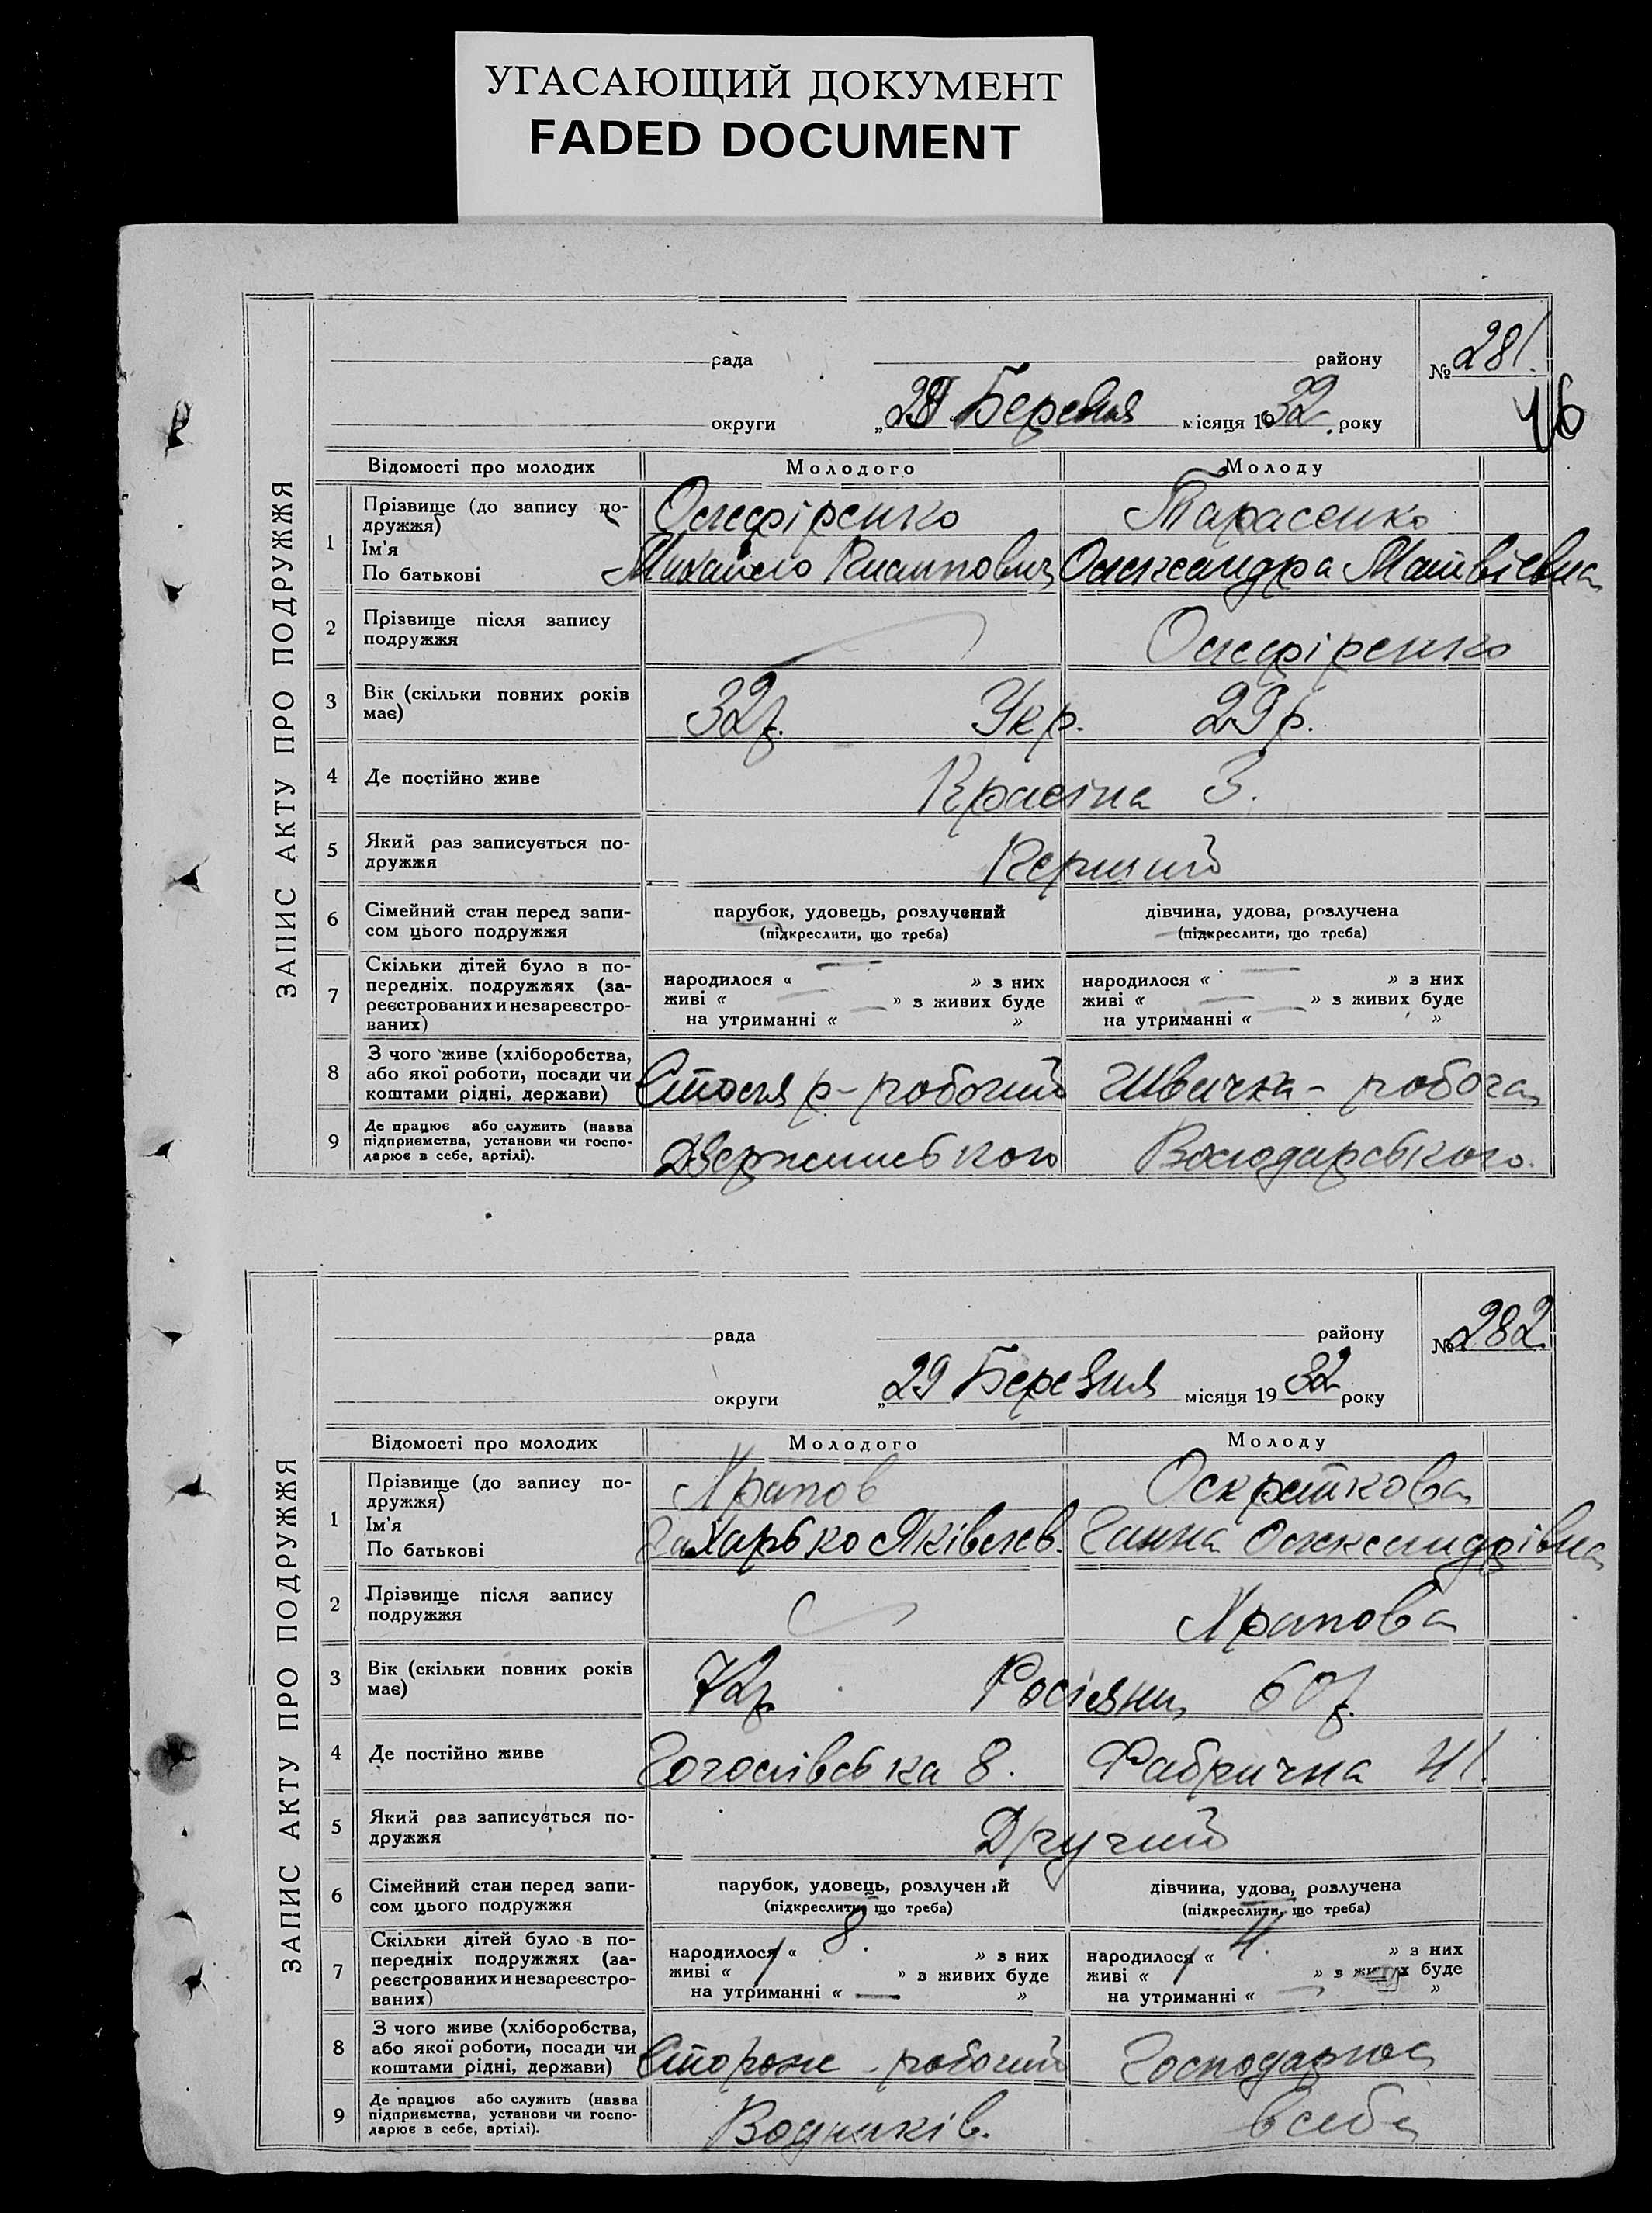 УГАСАЮЩИЙ ДОКУМЕНТ
FADED DOCUMENT
ЗАПИС АКТУ ПРО ПОДРУЖЖЯ
рада району № 281.
округи Березня місяця 1932 року
46
Відомості про молодих Молодого Молоду
1 Прізвище (до запису по-
дружжя) Олефіренко Тарасенко
Ім'я
По батькові Михайло Олександра Матвієвна
2 Прізвище після запису
подружжя Олефіренко
3 Вік (скільки повних років
має) 32 р. Укр. 29 р.
4 Де постійно живе Красіна 3.
5 Який раз записується по-
дружжя Перший
6 Сімейний стан перед запи-
сом цього подружжя
парубок, удовець, розлучений
(підкреслити, що треба)
дівчина, удова, розлучена
(підкреслити, що треба)
7 Скільки дітей було в по-
передніх подружжях (за-
реєстрованих и незареєстро-
ваних)
народилося « — » з них
живі « — » з живих буде
на утриманні « — »
народилося « — » з них
живі « — » з живих буде
на утриманні « — »
8 З чого живе (хліборобства,
або якої роботи, посади чи
коштами рідні, держави) Столяр - робочий Швачка - робоча
9 Де працює або служить (назва
підприємства, установи чи госпо-
дарює в себе, артілі). Володарського.
ЗАПИС АКТУ ПРО ПОДРУЖЖЯ
рада району № 282
округи „29 Березня місяця 1932 року
Відомості про молодих Молодого Молоду
1 Прізвище (до запису по-
дружжя) Храпов
Ім'я
По батькові Захарько Яківлев. Ганна Олександрівна
2 Прізвище після запису
подружжя Храпова
3 Вік (скільки повних років
має) 72 р. 60 р.
4 Де постійно живе Гоголівська 8. Фабрична 41.
5 Який раз записується по-
дружжя Другий
6 Сімейний стан перед запи-
сом цього подружжя
парубок, удовець, розлучений
(підкреслити, що треба)
дівчина, удова, розлучена
(підкреслити, що треба)
7 Скільки дітей було в по-
передніх подружжях (за-
реєстрованих и незареєстро-
ваних)
народилося « 8. » з них
живі « 1 » з живих буде
на утриманні « — »
народилося « 4. » з них
живі « 1 » з живих буде
на утриманні « — »
8 З чого живе (хліборобства,
або якої роботи, посади чи
коштами рідні, держави) Сторож - робочий Господарює
9 Де працює або служить (назва
підприємства, установи чи госпо-
дарює в себе, артілі). Водників. в себе